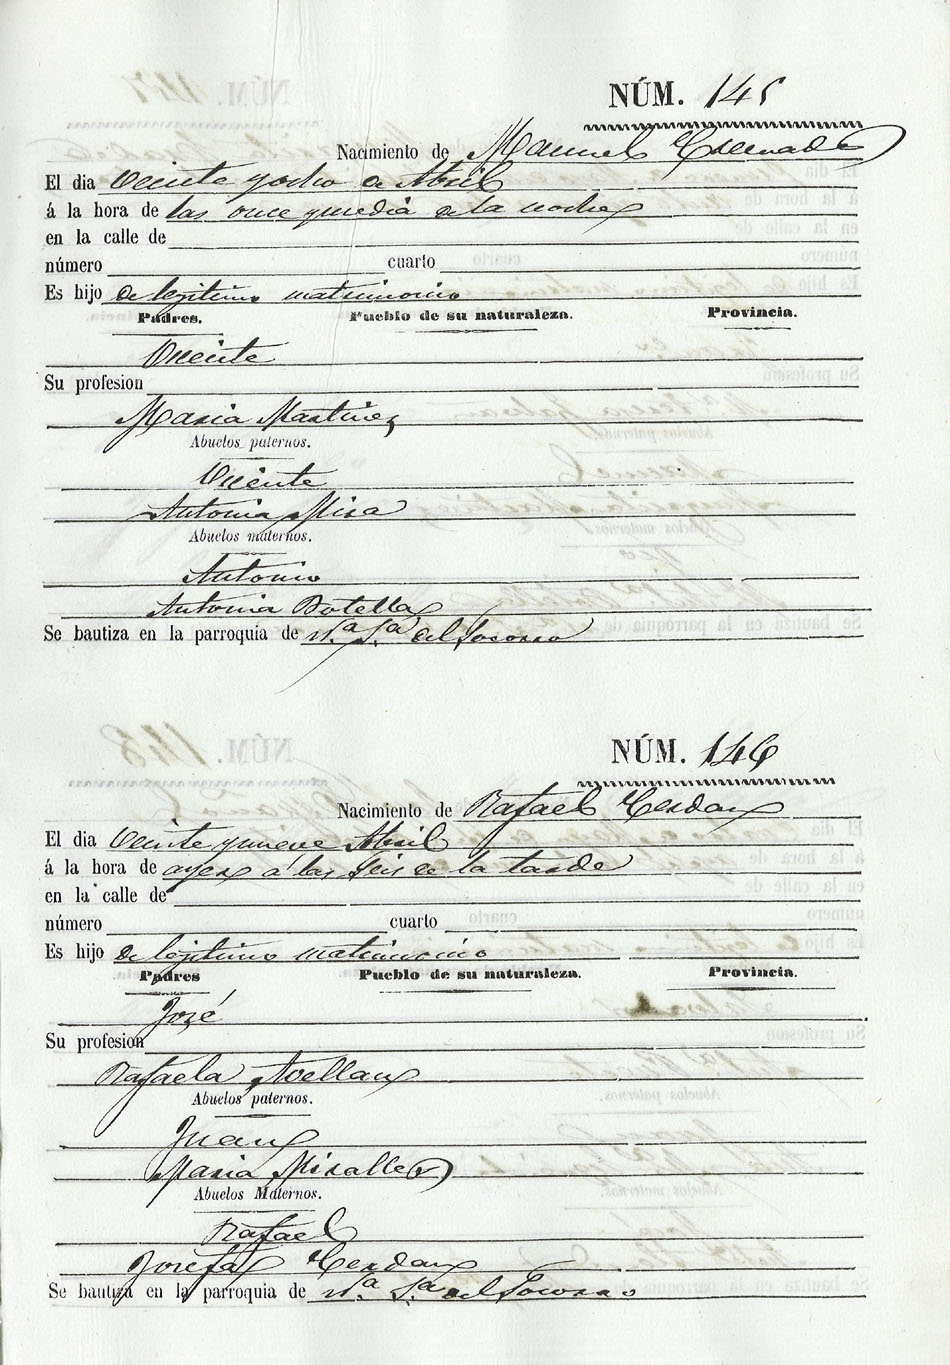 NÚM. 145
Nacimiento de Manuel
El dia Veinte y ocho de Abril
á la hora de las once y media de la noche
en la calle de
número cuarto
Es hijo de legitimo matrimonio
Padres. Pueblo de su naturaleza. Provincia.
Vicente
Su profesion
Maria Martinez
Abuelos paternos.
Vicente
Antonia Mira
Abuelos maternos.
Antonio
Antonia Botella
Se bautiza en la parroquia de N.ª S.ª del Socorro
NÚM. 146
Nacimiento de Rafael Cerdan
El dia Veinte y nueve Abril
á la hora de ayer á las seis de la tarde
en la calle de
número cuarto
Es hijo de legitimo matrimonio
Padres Pueblo de su naturaleza. Provincia.
José
Su profesion
Rafaela Avellan
Abuelos paternos.
Juan
Maria Miralles
Abuelos Maternos.
Rafael
Josefa Cerdan
Se bautiza en la parroquia de N.ª S.ª del Socorro